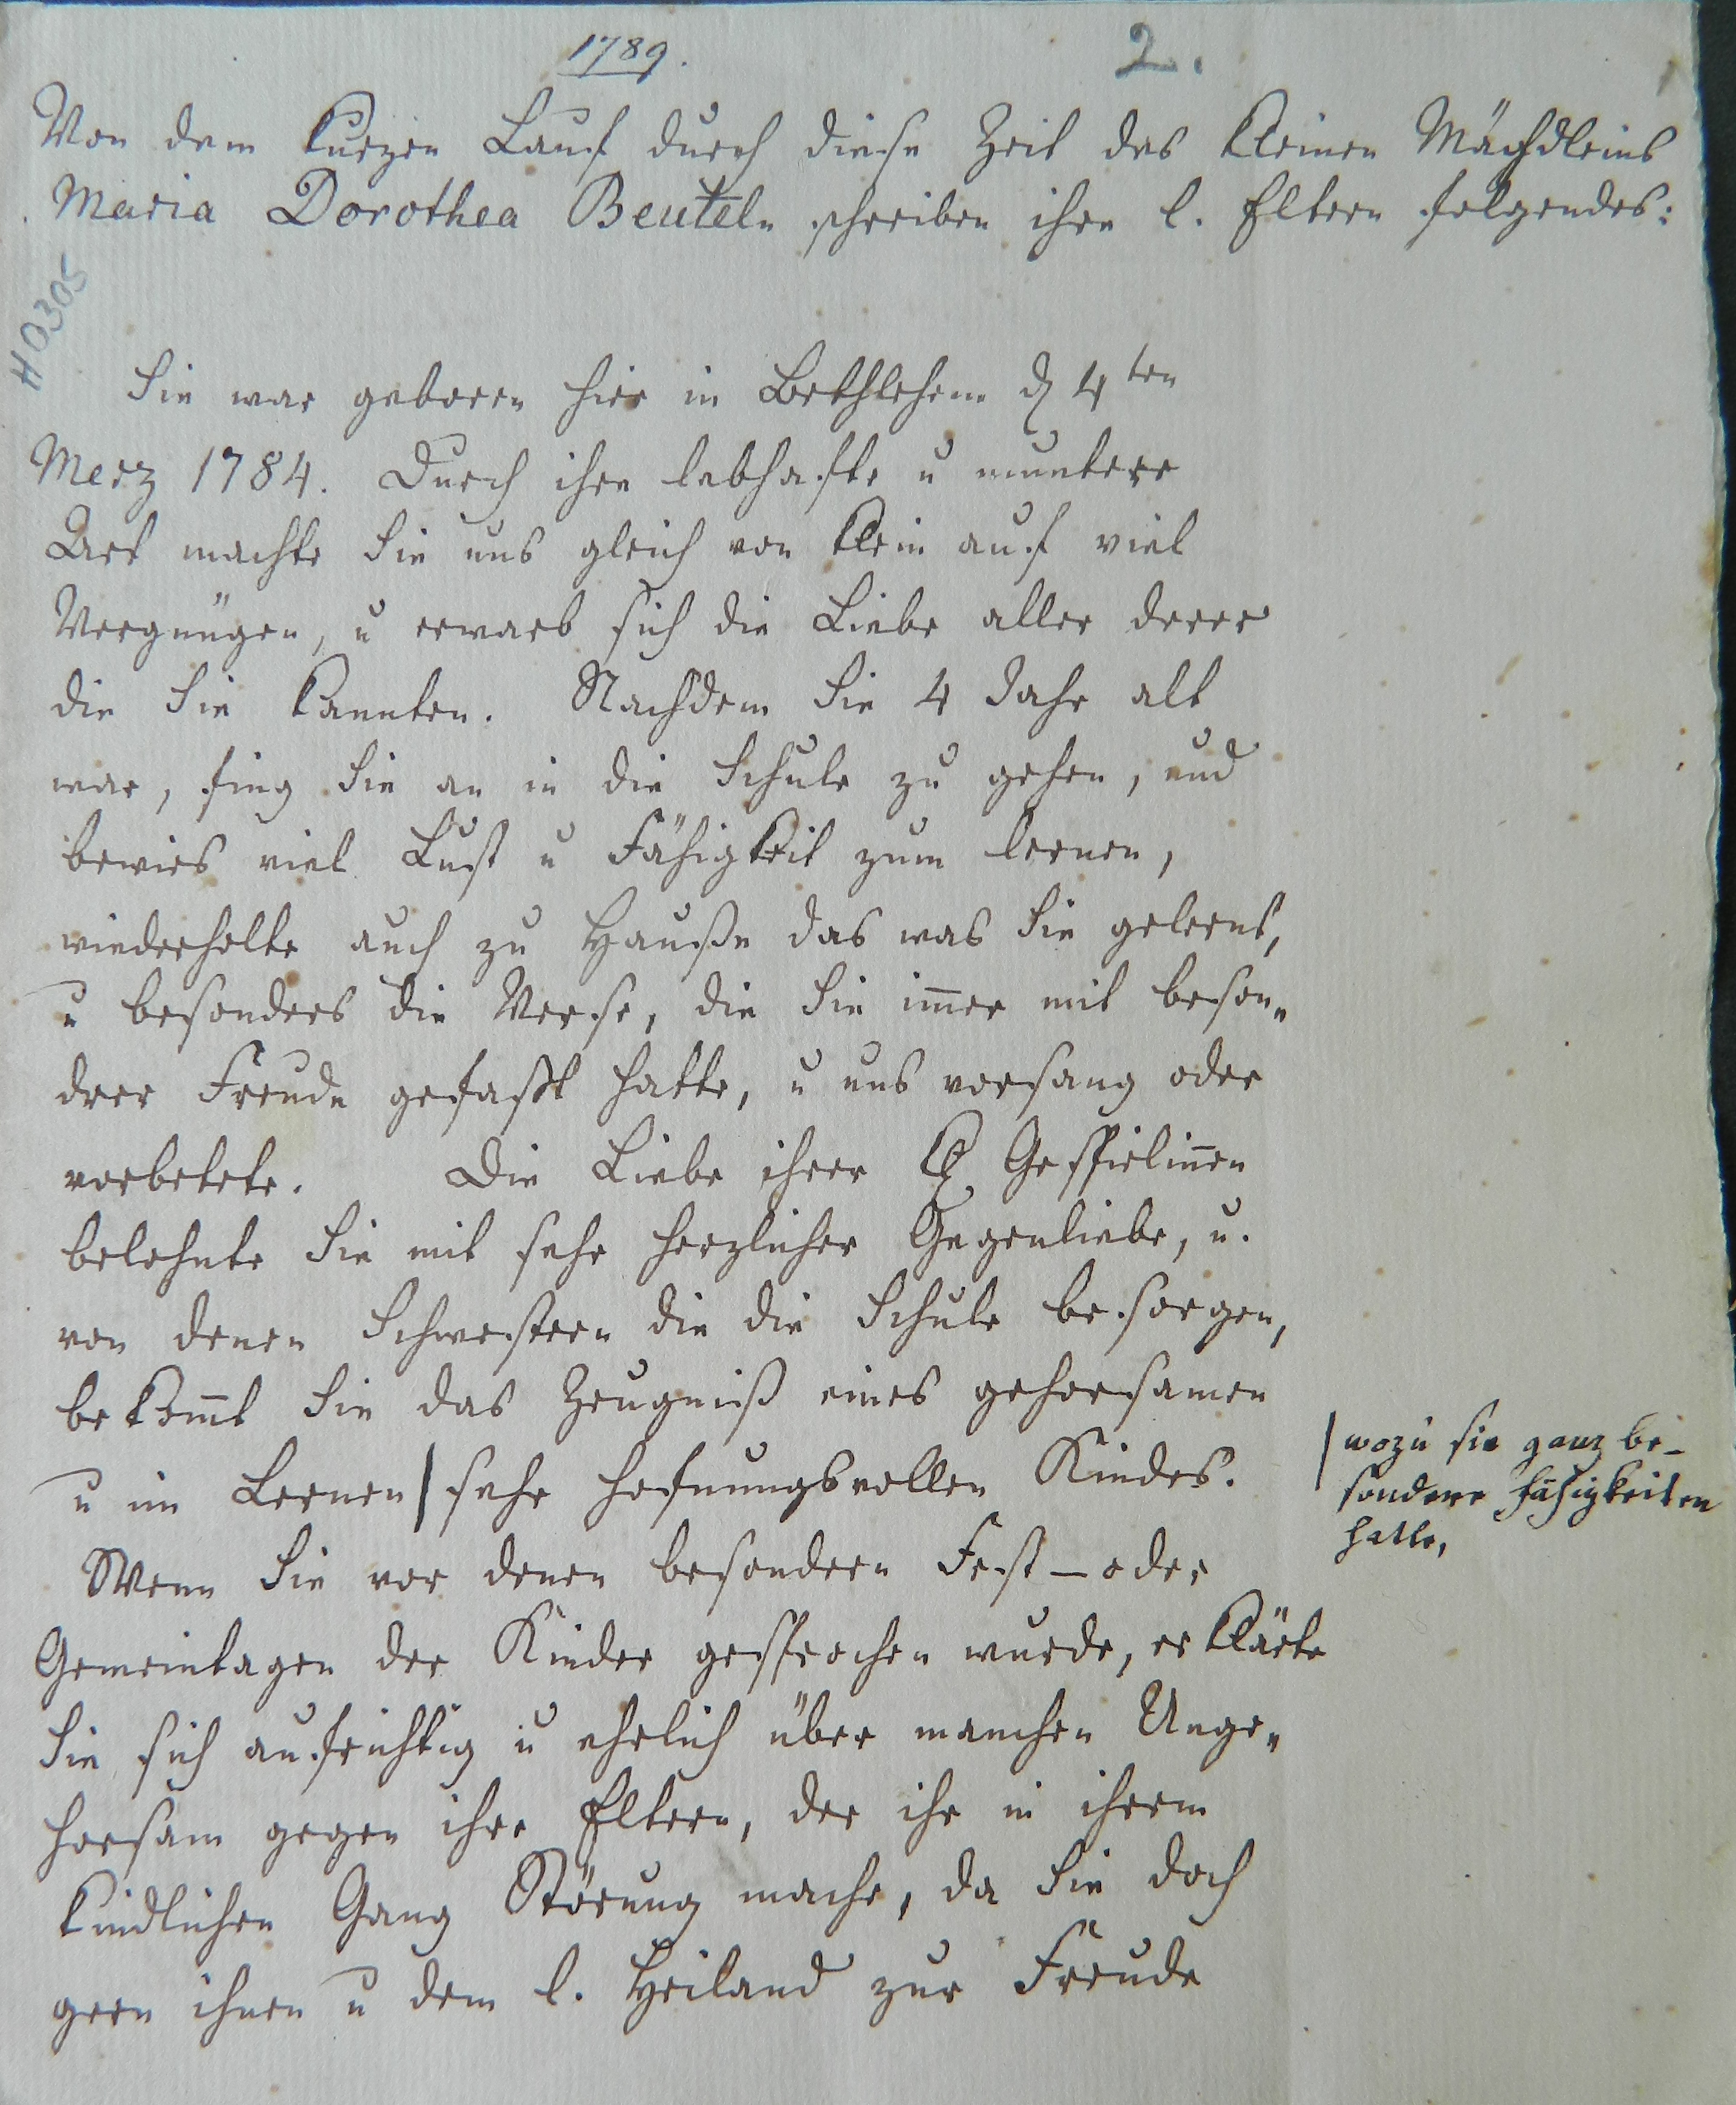 1789.
2.
Von dem kurzen Lauf durch diese Zeit des kleinen Mächdleins
Maria Dorothea Beuteln schreiben ihre l. Eltern folgendes:
H0305
Sie war geboren hier in Bethlehem d 4ten
Merz 1784. Durch ihre lebhafte u muntere
Art machte Sie uns gleich von klein auf viel
Vergnügen, u erwarb sich die Liebe aller derer
die Sie kannten. Nachdem Sie 4 Jahr alt
war, fing Sie an in die Schule zu gehen, und
bewies viel Lust u Fähigkeit zum lernen,
wiederholte auch zu Hauße das was Sie gelernt,
u besonders die Verse, die Sie im̅er mit beson„
drer Freude gefaßt hatte, u uns vorsang oder
vorbetete. Die Liebe ihrer kl Gespielin̅en
belohnte Sie mit sehr herzlicher Gegenliebe, u.
von denen Schwestern die die Schule besorgen,
bekom̅t Sie das Zeugniß eines gehorsamen
u im Lernen | sehr hofnungsvollen Kindes.
| wozu sie ganz be-
sondere Fähigkeiten
hatte,
Wenn Sie vor denen besondern Fest- oder
Gemeintagen der Kinder gesprochen wurde, erklärte
Sie sich aufrichtig u ehrlich über manchen Unge„
horsam gegen ihre Eltern, der ihr in ihrem
kindlichen Gang Störung mache, da Sie doch
gern ihnen u dem l. Heiland zur Freude